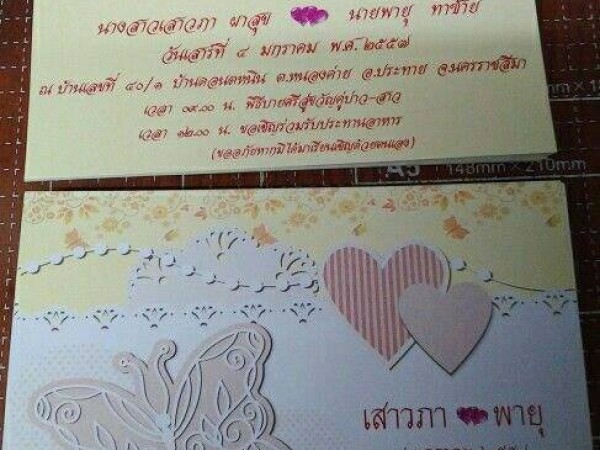 นางสาวเสาวภา ผาสุข นายพายุ ทาซ้าย
วันเสาร์ที่ ๔ มกราคม พ.ศ. ๒๕๕๗
ณ บ้านเลขที่ ๔๐/๑ บ้านดอนตหนิน ต.หนองค่าย อ.ประทาย จ.นครราชสีมา
เวลา ๐๙.๐๐ น. พิธีบายศรีสู่ขวัญคู่บ่าว-สาว
เวลา ๑๒.๐๐ น. ขอเชิญร่วมรับประทานอาหาร
(ขออภัยหากมิได้มาเรียนเชิญด้วยตนเอง)
A5 148mm×210mm
เสาวภา พายุ